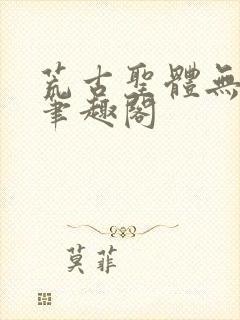 荒古聖體無
筆趣閣
莫菲